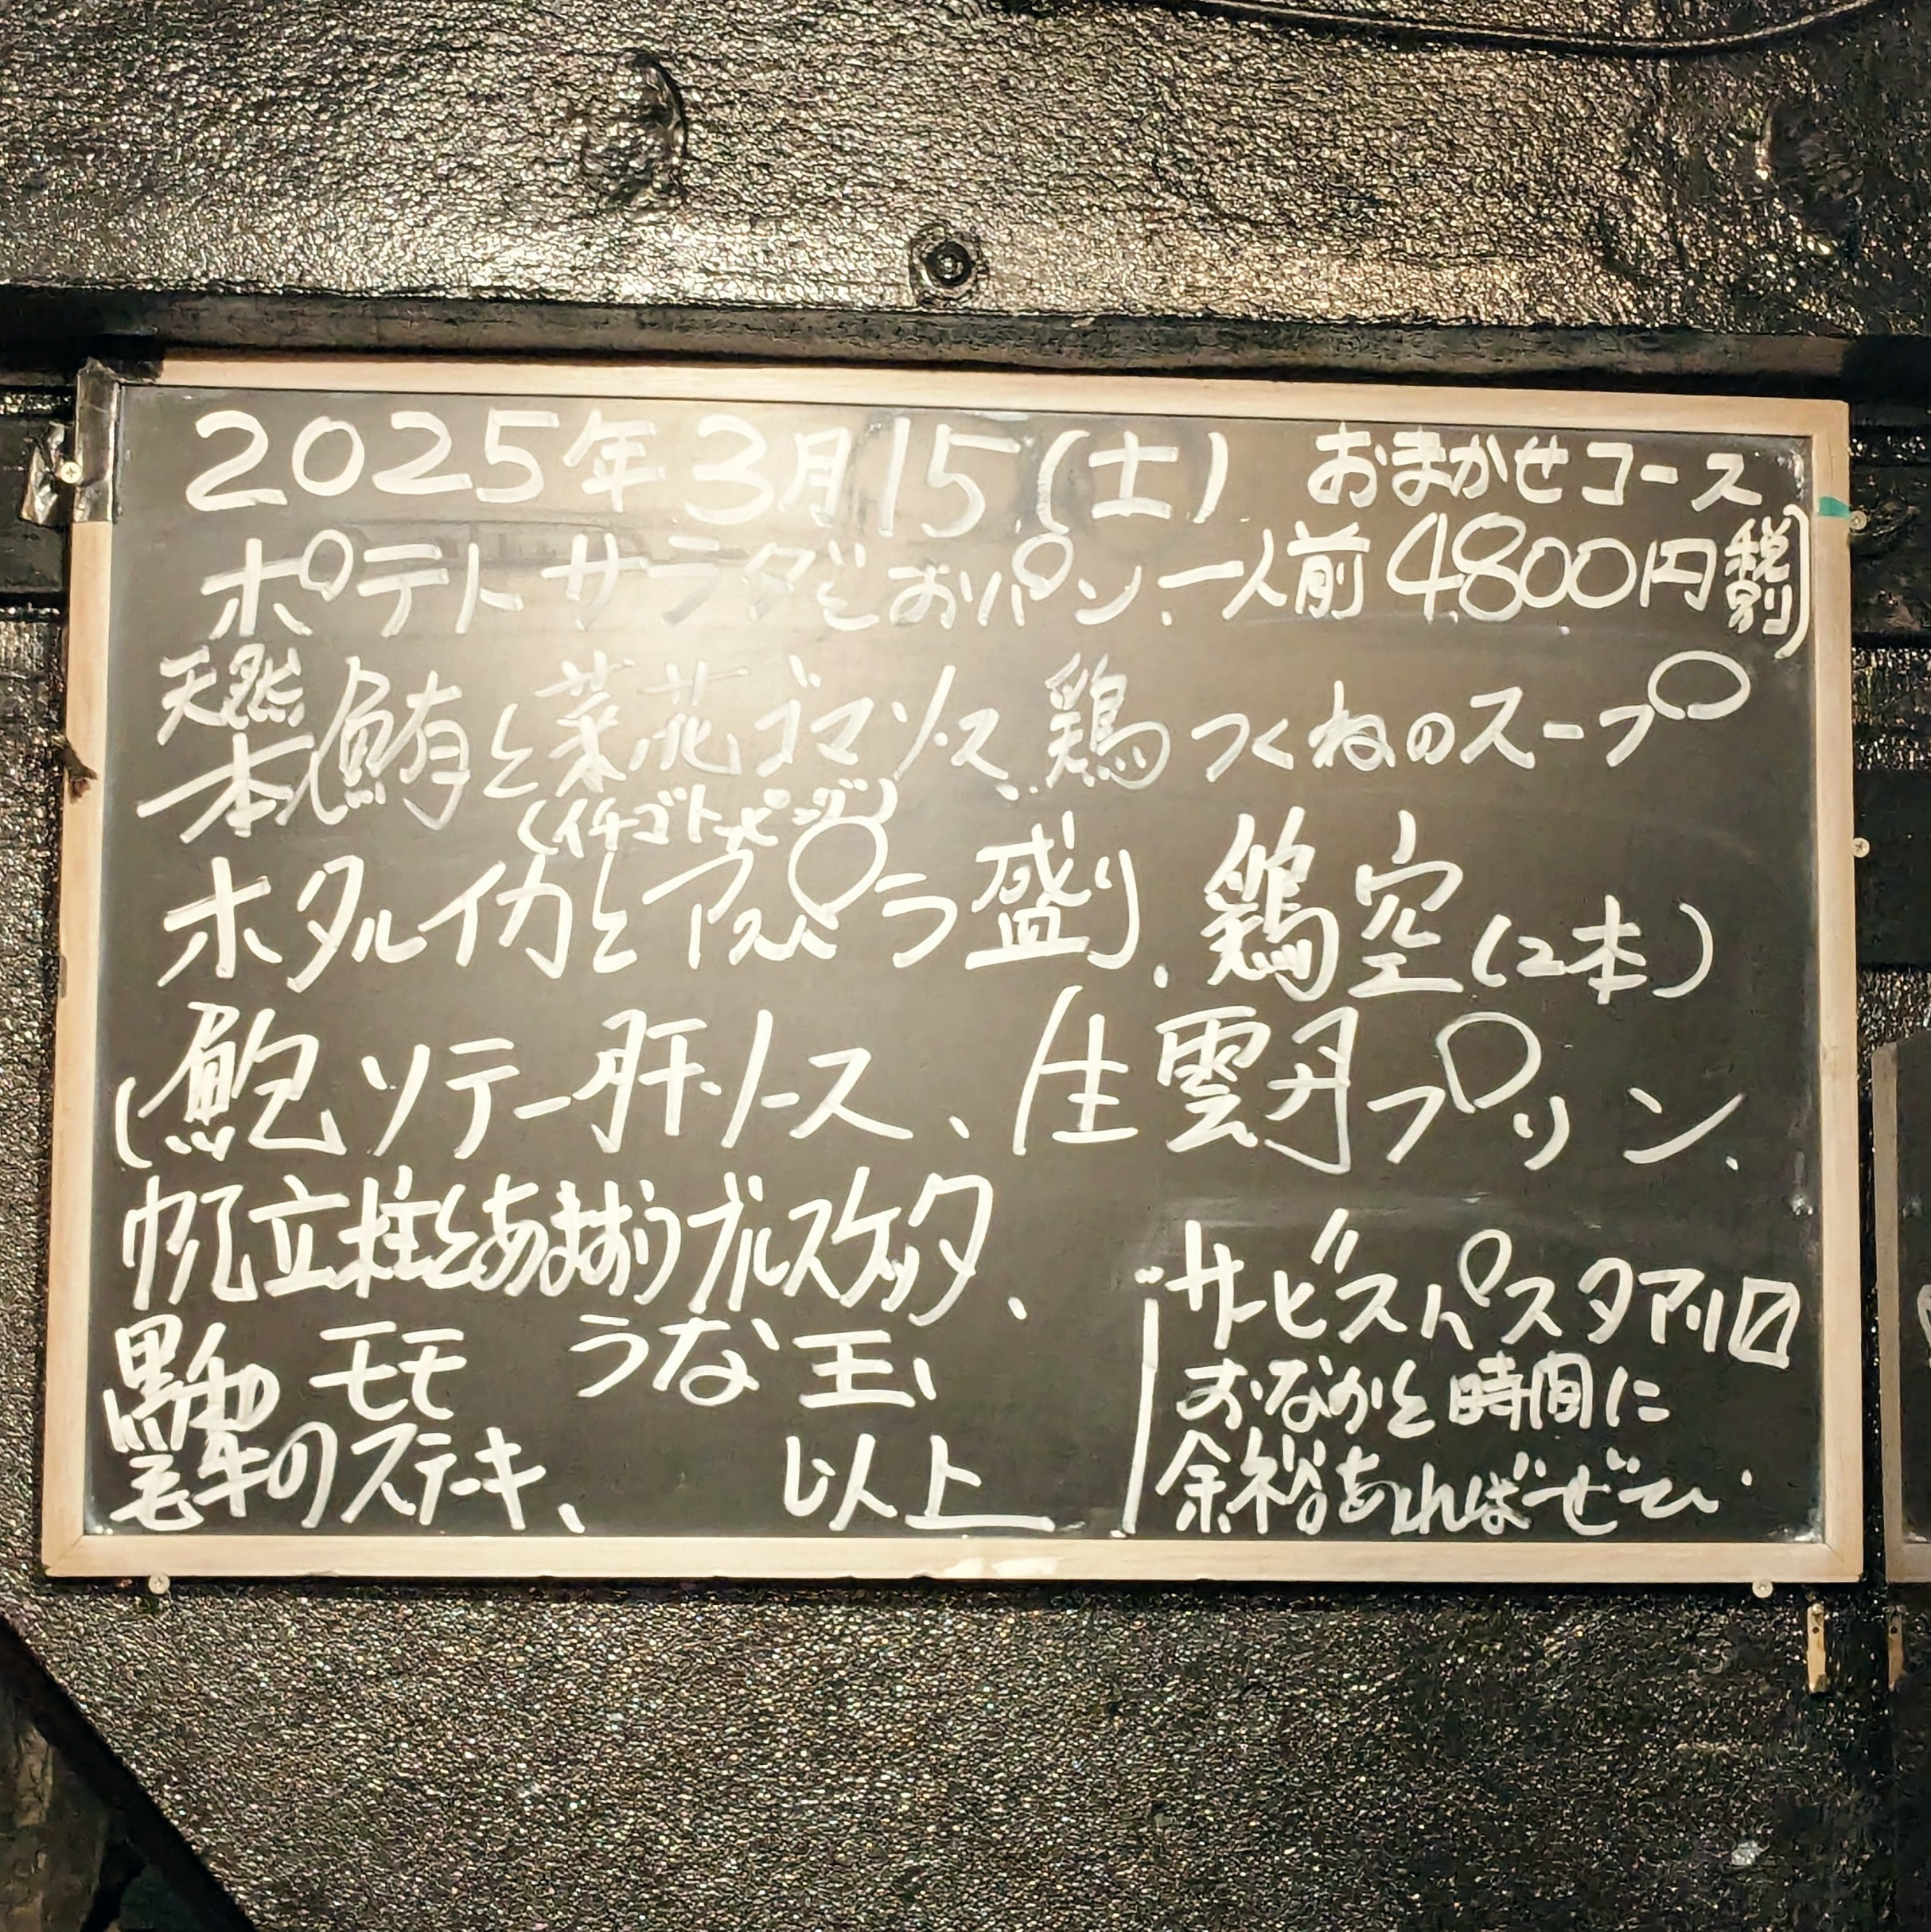 2025年3月15(土) おまかせコース
ポテトサラダとおパン、一人前4800円(税別)
天然
本鮪と菜花ゴマソース、鶏つくねのスープ
(イチゴトッピング)
ホタルイカとアスパラ盛り、鶏空(2本)
(鮑ソテー肝ソース、(生雲丹プリン、
帆立柱とあまおうブルスケッタ、
黒毛和牛モモのステーキ、
うな玉、
以上
サービスパスタアリ〼
おなかと時間に
余裕あればぜひ.